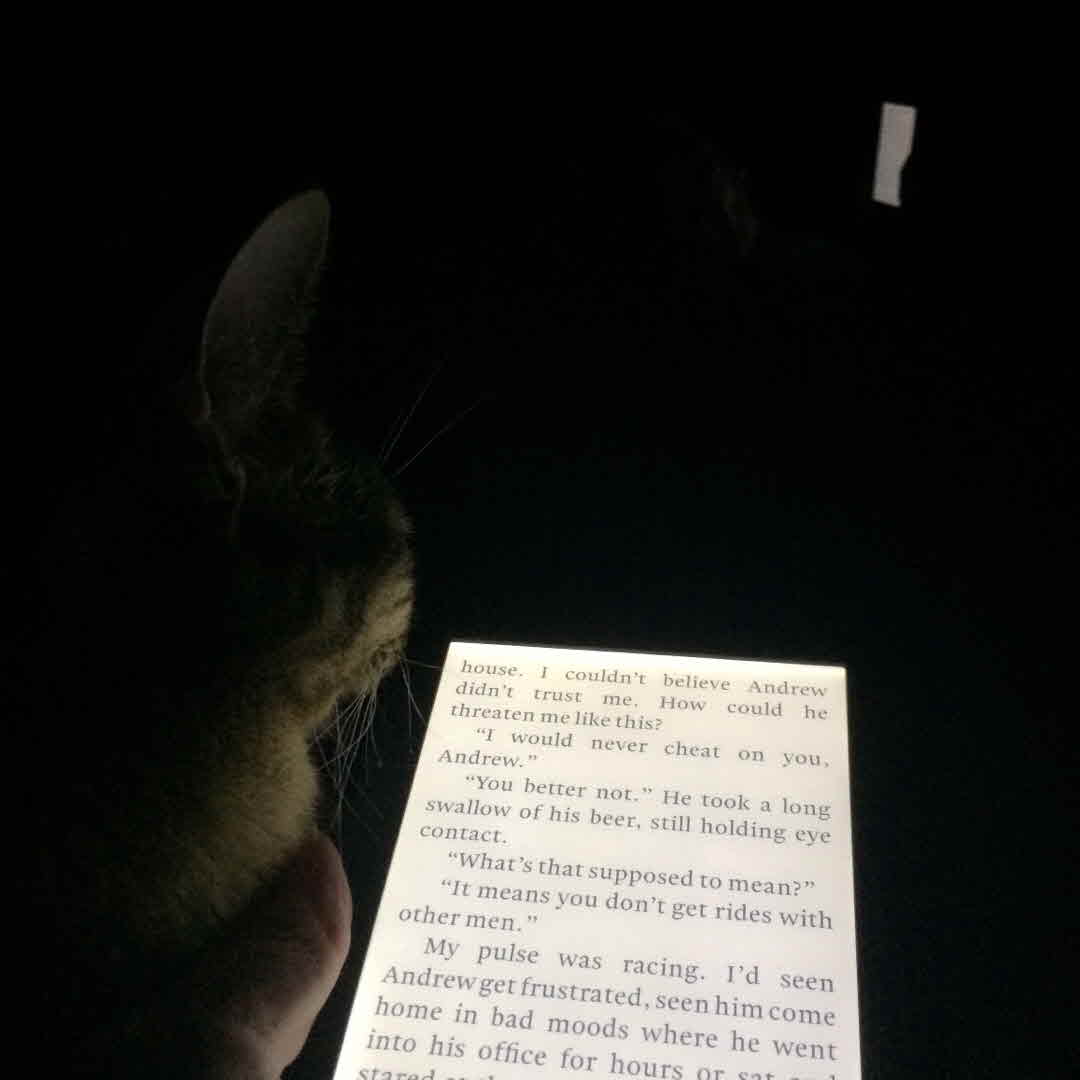 house. I couldn't believe Andrew
didn't trust me. How could he
threaten me like this?
“I would never cheat on you,
Andrew.”
“You better not.” He took a long
swallow of his beer, still holding eye
contact.
“What's that supposed to mean?”
“It means you don't get rides with
other men.”
My pulse was racing. I'd seen
Andrew get frustrated, seen him come
home in bad moods where he went
into his office for hours or sat and
stared